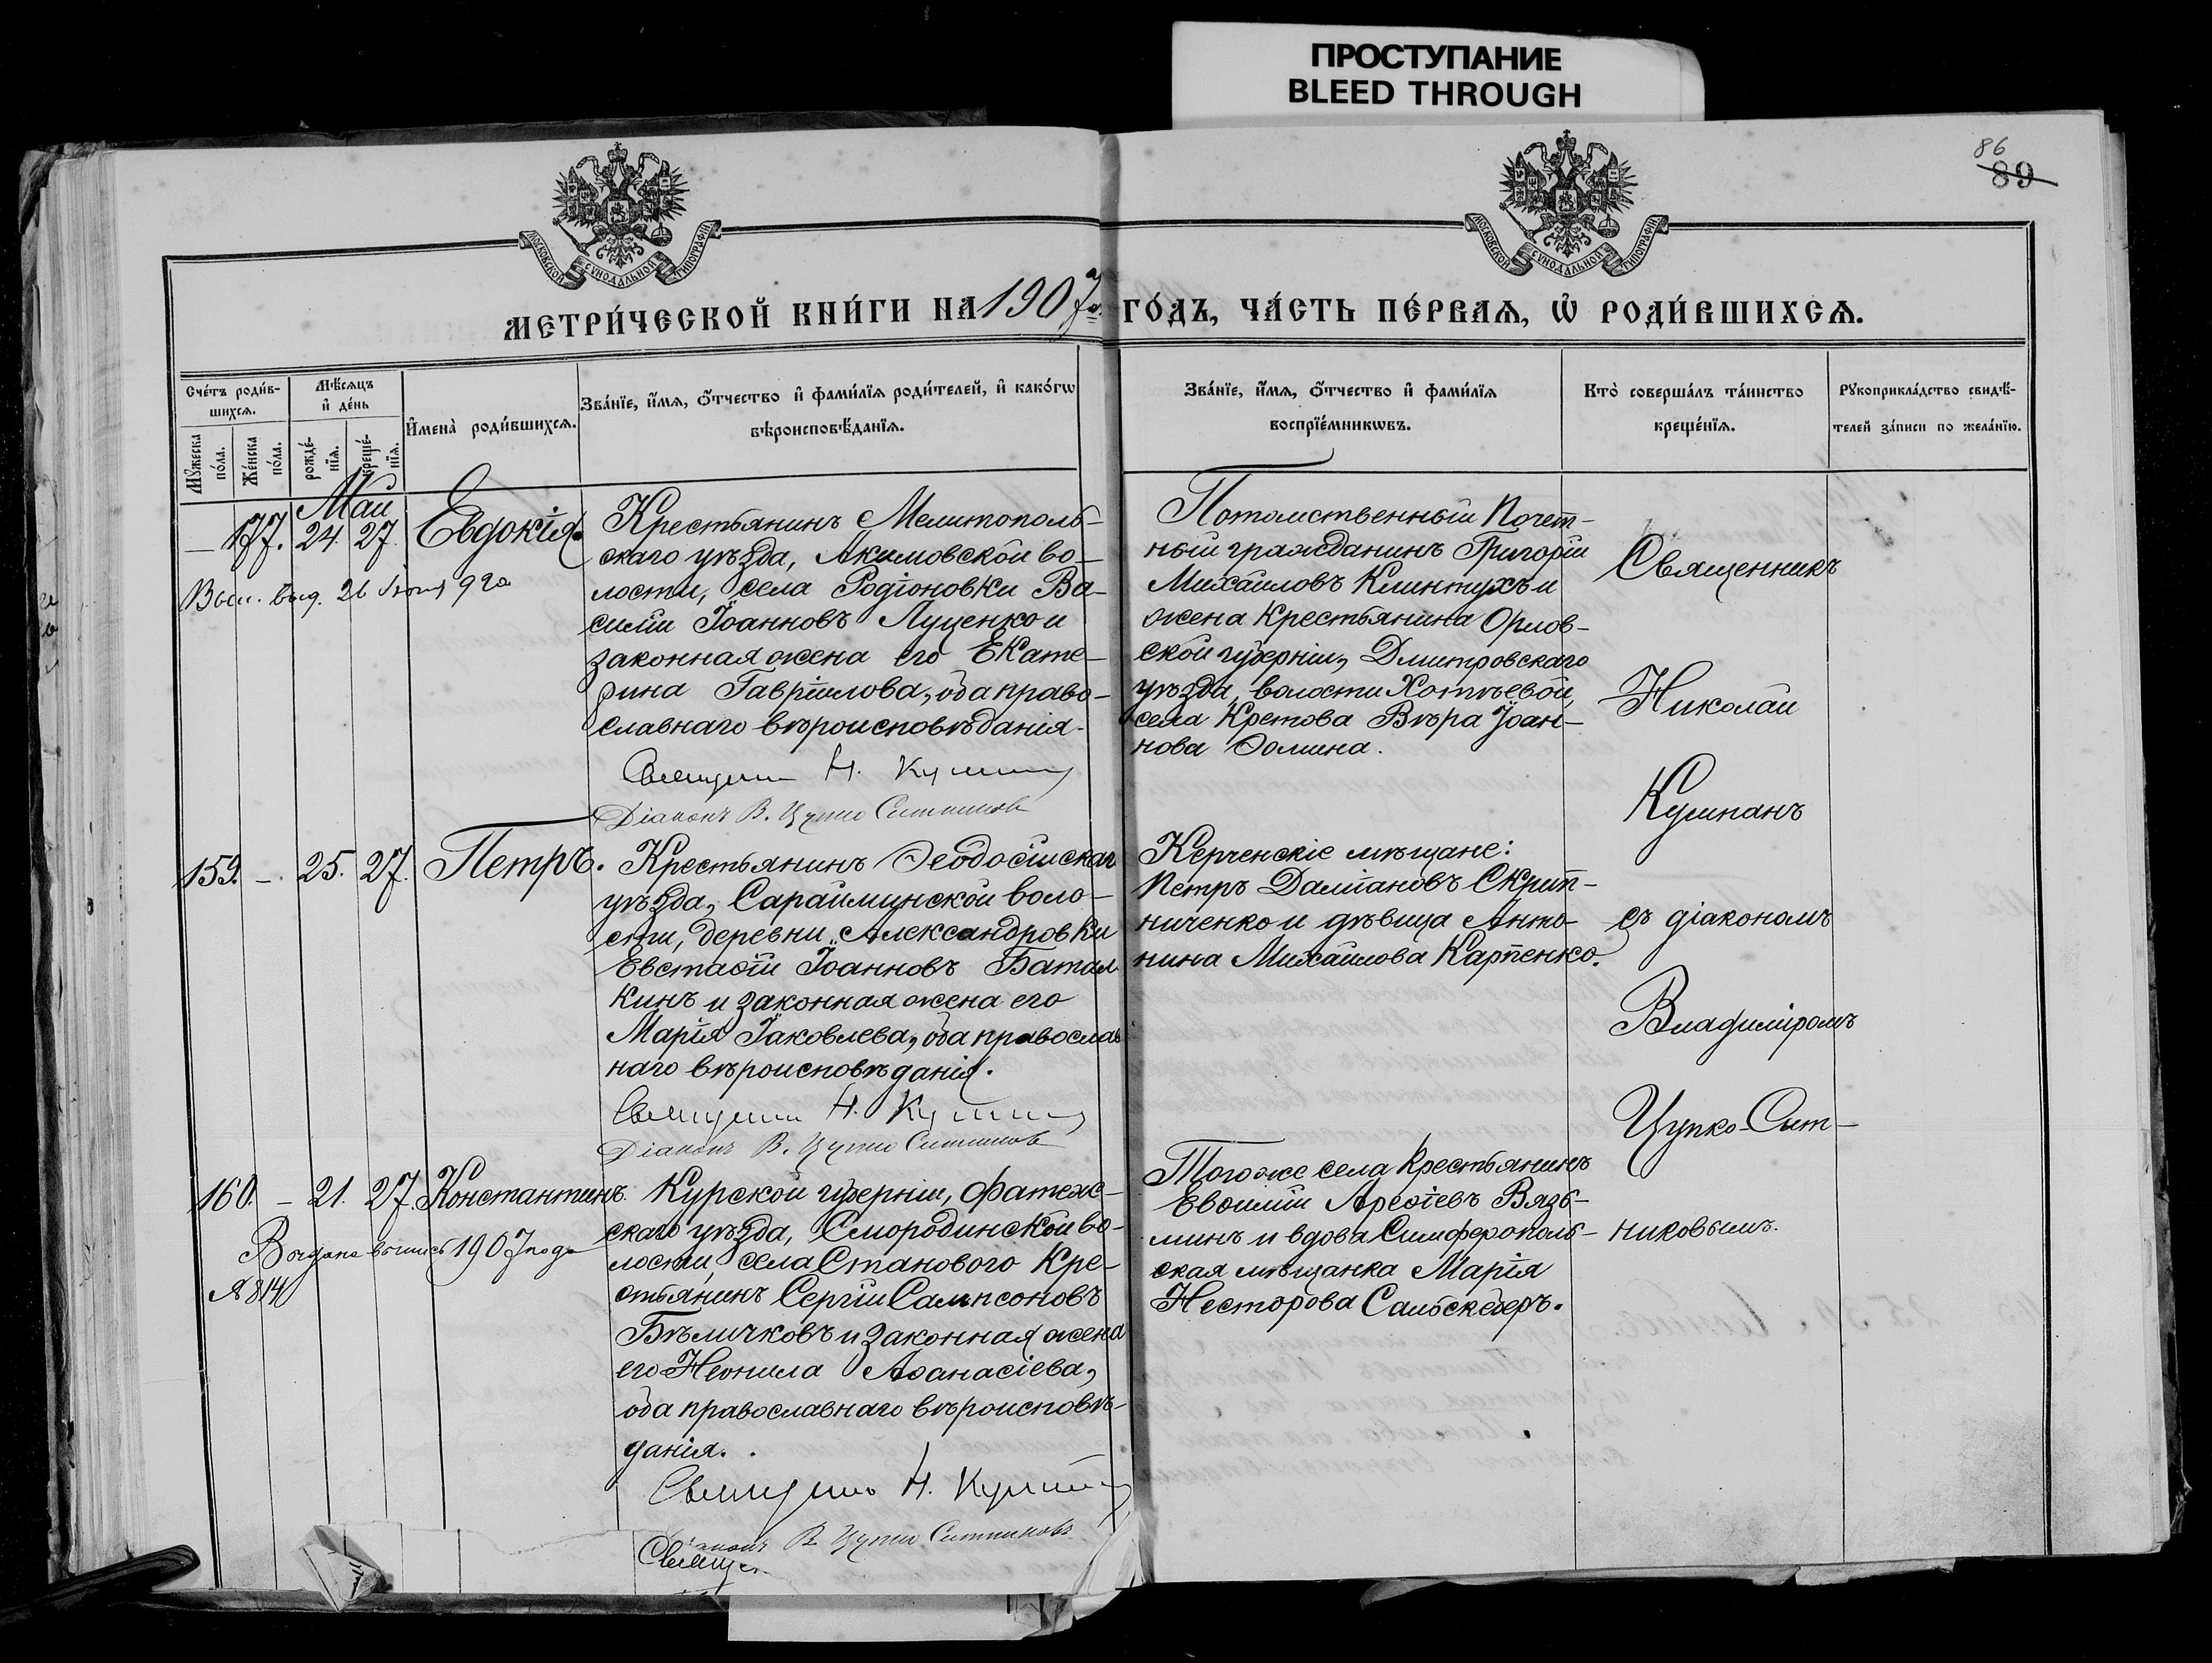 ПРОСТУПАНИЕ
BLEED THROUGH
86
89
МОСКОВСКОЙ СѴНОДАЛЬНОЙ ТИПОГРАФІИ
МОСКОВСКОЙ СѴНОДАЛЬНОЙ ТИПОГРАФІИ
МЕТРИ́ЧЕСКОЙ КНИ́ГИ НА 1907 ГО́ДЪ, ЧА́СТЬ ПЕ́РВАѦ, Ѡ҆ РОДИ́ВШИХСѦ.
Сче́тъ роди́в-
шихсѧ.
Мꙋ́жеска по́ла.
Же́нска по́ла.
Мѣ́сѧцъ
и҆ де́нь
рожде́-
нїѧ.
креще́-
нїѧ.
И҆мена̀ роди́вшихсѧ.
Зва́нїе, и҆́мѧ, ѻ҆́тчество и҆ фами́лїѧ роди́телей, и҆ како́гѡ
вѣроисповѣ́данїѧ.
Зва́нїе, и҆́мѧ, ѻ҆́тчество и҆ фами́лїѧ
воспрїе́мникѡвъ.
Кто̀ соверша́лъ та́инство
креще́нїѧ.
Рꙋкоприкла́дство свидѣ́-
телей за́писи по жела́нїю.
Май
— 177. 24. 27. Евдокія.
Крестьянинъ Мелитополь-
скаго уѣзда, Акимовской во-
лости, села Родіоновки Ва-
силій Іоанновъ Луценко и
законная жена его Екате-
рина Гавріилова, оба право-
славнаго вѣроисповѣданія.
Н.
Діаконъ В. Цупко Ситников
Потомственный Почет-
ный гражданинъ Григорій
Михайловъ Клинтухъ и
жена крестьянина Орлов-
ской губерніи, Дмитровскаго
уѣзда, волости Хотѣевой,
села Кретова Вѣра Іоан-
нова Фомина.
Священникъ
Николай
Кумпанъ
съ діакономъ
Владиміромъ
Цупко-Сит-
никовымъ.
159. — 25. 27. Петръ.
Крестьянинъ Ѳеодосійскаг
уѣзда, Сарайминской воло-
сти, деревни Александровки
Евстаѳій Іоанновъ Батал-
кинъ и законная жена его
Марія Іаковлева, оба православ
наго вѣроисповѣданія.
Н.
Діаконъ В. Цупко Ситников
Керченскіе мѣщане:
Петръ Даміановъ Скрип-
ниченко и дѣвица Анто-
нина Михайлова Карпенко.
160. — 21. 27. Константинъ.
Выдана выпись 1907 года
№ 814
Курской губерніи, Фатеж-
скаго уѣзда, Смородинской во-
лости, села Станового кре-
стьянинъ Сергій Сампсоновъ
Бѣличковъ и законная жена
его Неонила Аѳанасіева,
оба православнаго вѣроисповѣ-
данія.
Н.
В. Цупко Ситниковъ
Свящ
Того же села крестьянинъ
Евѳимій Ареѳіевъ Вязь-
минъ и вдова Симферополь-
ская мѣщанка Марія
Несторова